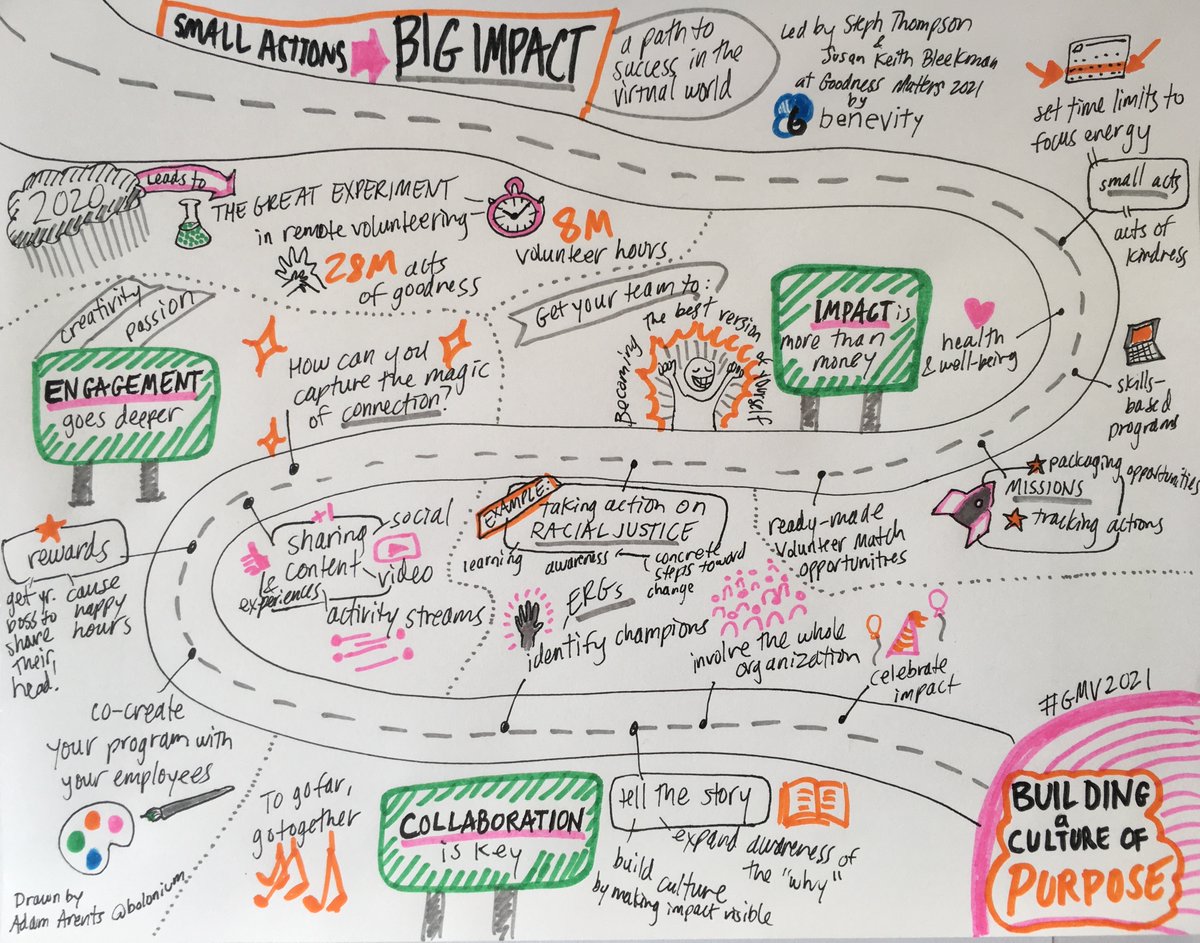 SMALL ACTIONS
BIG IMPACT
a path to
success in the
virtual world
Led by Steph Thompson
&
Susan Keith Bleekman
at Goodness Matters 2021
by
benevity
set time limits to
focus energy
small acts
acts of
kindness
2020
Leads to
THE GREAT EXPERIMENT
in remote volunteering
8M
volunteer hours
28M acts
of goodness
creativity
passion
ENGAGEMENT
goes deeper
How can you
capture the magic
of connection?
Get your team to:
Becoming
The best version
of yourself
IMPACT is
more than
money
health
& well-being
skills-
based
programs
packaging opportunities
MISSIONS
tracking actions
ready-made
Volunteer Match
opportunities
EXAMPLE:
taking action on
RACIAL JUSTICE
learning
awareness
concrete
steps toward
change
+1
sharing
content
&
experiences
social
video
activity streams
rewards
get yr.
boss to
share
their
head!
cause
happy
hours
co-create
your program with
your employees
ERGs
identify champions
involve the whole
organization
celebrate
impact
To go far,
go together
COLLABORATION
is key
tell the story
expand awareness of
the "why"
build culture
by making impact visible
#GMV2021
BUILDING
a
CULTURE OF
PURPOSE
Drawn by
Adam Arents @bolonium